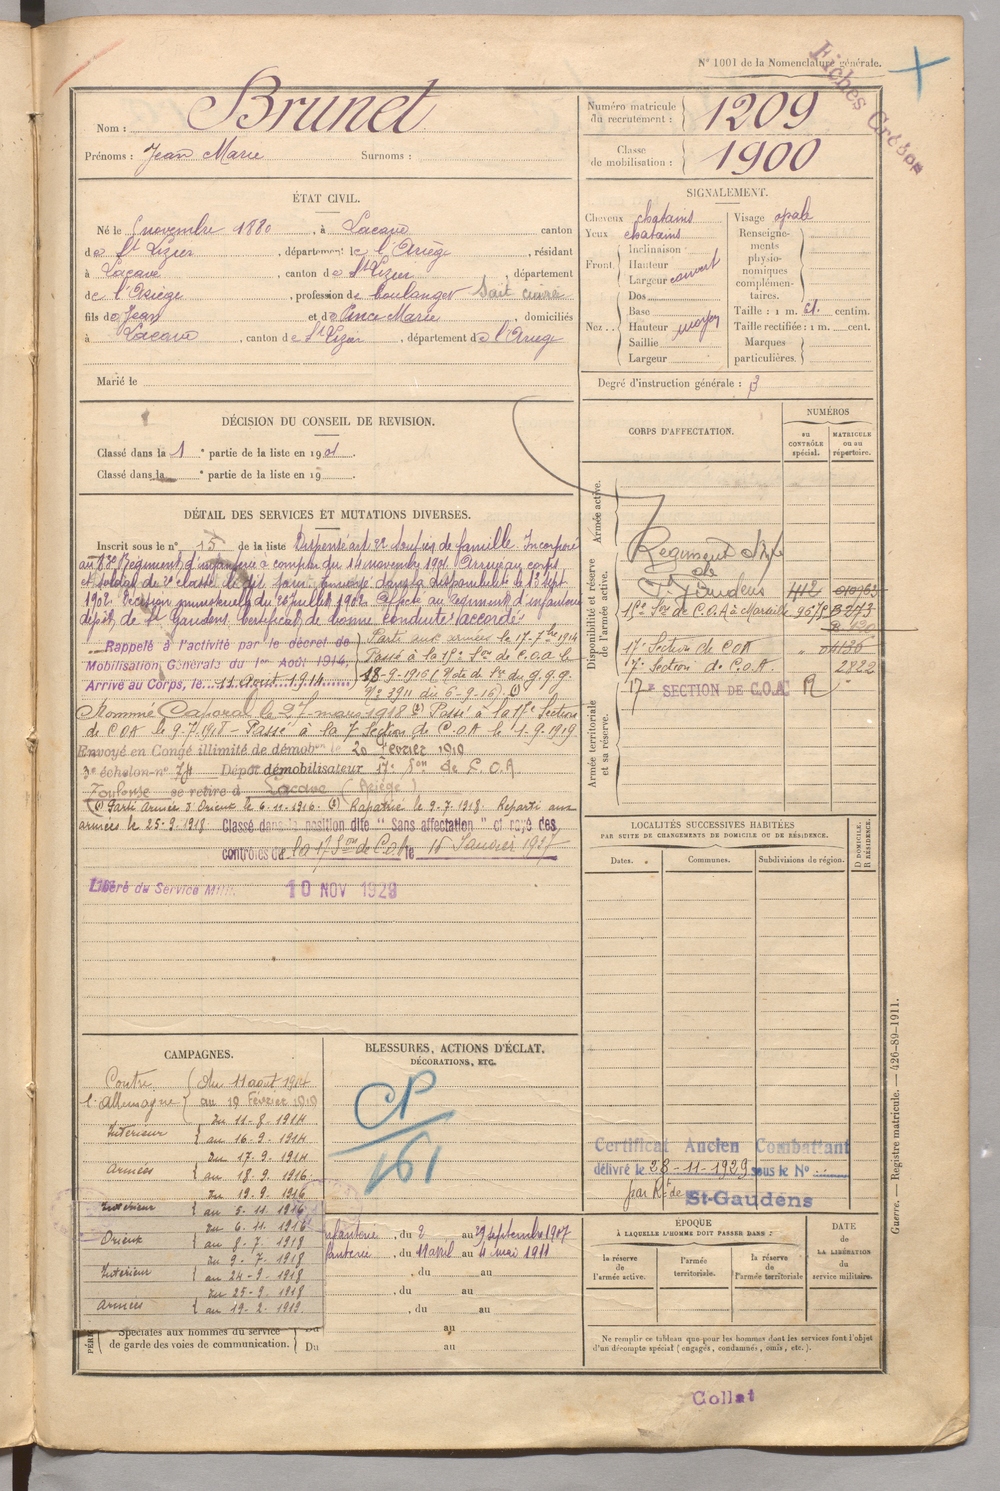 N° 1001 de la Nomenclature générale.
Fiches
Nom : Brunet
Prénoms : Jean Marie Surnoms :
Numéro matricule du recrutement : 1209
Classe de mobilisation : 1900
ÉTAT CIVIL.
Né le 5 novembre 1880, à Lacave canton
de St Lizier, département de l'Ariège, résidant
à Lacave, canton de St Lizier, département
de l'Ariège, profession de boulanger
fils de Jean et de Marie, domiciliés
à Lacave, canton de St Lizier, département de l'Ariège
Marié le
SIGNALEMENT.
Cheveux chatains
Yeux chatains
Front
Inclinaison
Hauteur
Largeur couvert
Nez
Dos
Base
Hauteur moyen
Saillie
Largeur
Visage
Renseignements physionomiques complémentaires.
Taille : 1 m. centim.
Taille rectifiée : 1 m. cent.
Marques particulières.
Degré d'instruction générale : 3
DÉCISION DU CONSEIL DE REVISION.
Classé dans la 1 e partie de la liste en 1901.
Classé dans la e partie de la liste en 19
DÉTAIL DES SERVICES ET MUTATIONS DIVERSES.
Inscrit sous le n° 15 de la liste Dispensé art. 22 soutien de famille. Incorporé
au 83e Régiment d'infanterie à compter du 14 novembre 1901. Arrivé au corps
et soldat de 2e classe le dit jour. Envoyé dans la disponibilité le 12 sept
1902. Décision ministérielle du juillet 1902. Affecté au régiment d'infanterie
dépôt de St Gaudens. Certificat de bonne conduite accordé.
Rappelé à l'activité par le décret de
Mobilisation Générale du 1er Août 1914,
Arrivé au Corps, le 11 Août 1914
Parti aux armées le 17-7bre 1914
Passé à la 15e Son de C.O.A. le
18-9-1916 (Note de du G.Q.G.
N° 3911 du 6-9-16) (1)
Nommé Caporal le 27 mars 1918 (2) Passé à la 17e Section
de COA le 9-7-1918 - Passé à la 7 Section de C.O.A le 1-9-1919.
Envoyé en Congé illimité de démobon le 20 Février 1919
3e échelon n° 74 Dépôt démobilisateur 17e Son de C.O.A.
Toulouse se retire à Lacave (Ariège)
(1) Parti Armée d'Orient le 6-11-1916. (2) Rapatrié le 9-7-1918. Reparti aux
armées le 25-9-1918 Classé dans la position dite "Sans affectation" et rayé des
contrôles de la 17 Son de C.O.A le 15 Janvier 1927
Libéré du Service Milit. 10 NOV 1929
CORPS D'AFFECTATION.
NUMÉROS
au CONTRÔLE spécial.
MATRICULE ou au répertoire.
Armée active.
Disponibilité et réserve de l'armée active.
Régiment d'Inf
de
St Gaudens 412
15e Son de C.O.A à Marseille
17e Section de COA
7e Section de C.O.A. 2822
Armée territoriale et sa réserve.
17e SECTION DE C.O.A.
LOCALITÉS SUCCESSIVES HABITÉES
PAR SUITE DE CHANGEMENTS DE DOMICILE OU DE RÉSIDENCE.
Dates.
Communes.
Subdivisions de région.
D DOMICILE.
R RÉSIDENCE.
CAMPAGNES.
Contre l'Allemagne { du 11 août 1914
au 19 Février 1919
Intérieur { du 11-8-1914
au 16-9-1914
Armées { du 17-9-1914
au 18-9-1916
Intérieur { du 19-9-1916
au 5-11-1916
Orient { du 6-11-1916
au 8-7-1918
Intérieur { du 9-7-1918
au 24-9-1918
Armées { du 25-9-1918
au 19-2-1919
Spéciales aux hommes du service
de garde des voies de communication.
BLESSURES, ACTIONS D'ÉCLAT,
DÉCORATIONS, ETC.
CP/161
nfanterie, du 2 au 29 septembre 1907
fanterie, du 11 avril au 4 mai 1911
, du au
, du au
, du au
Du au
Du au
Certificat Ancien Combattant
délivré le 28-11-1929 sous le N°
par Rt de St-Gaudens
ÉPOQUE
À LAQUELLE L'HOMME DOIT PASSER DANS :
la réserve de l'armée active.
l'armée territoriale.
la réserve de l'armée territoriale
DATE de LA LIBÉRATION du service militaire.
Ne remplir ce tableau que pour les hommes dont les services font l'objet
d'un décompte spécial (engagés, condamnés, omis, etc.).
Guerre. — Registre matricule. — 426-89-1911.
Collat